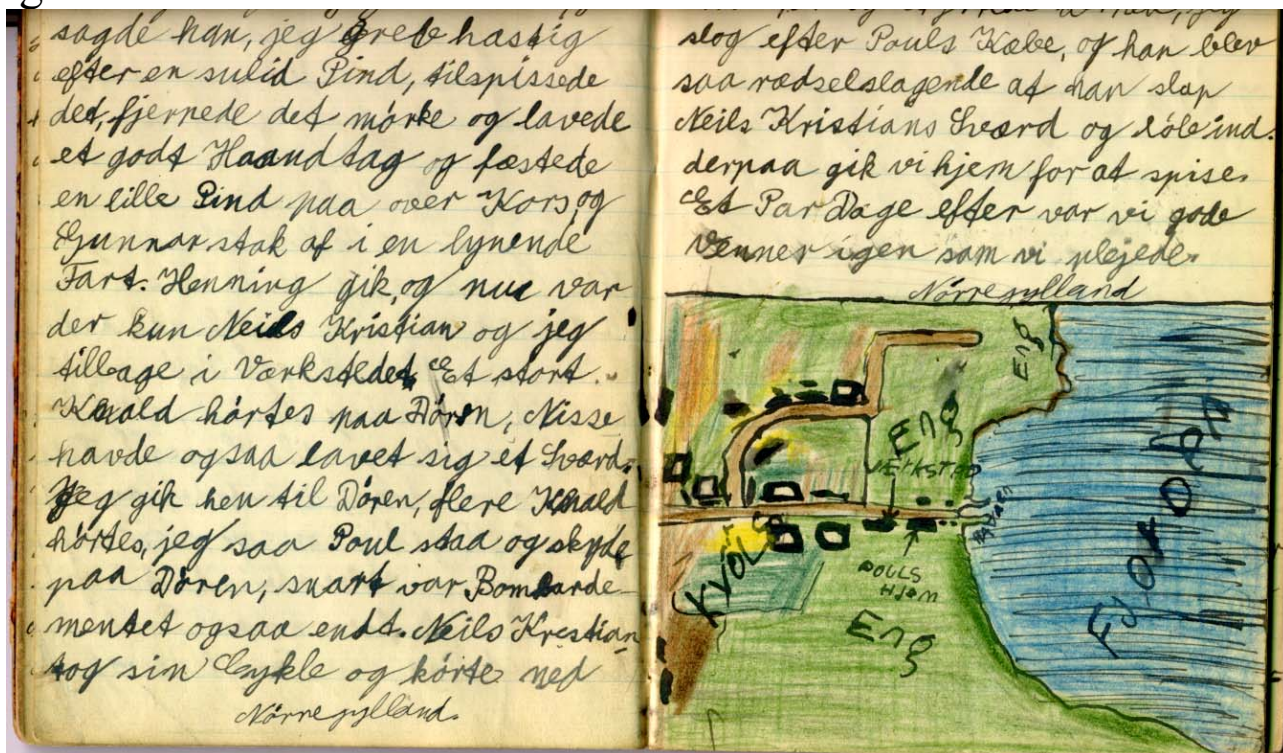 sagde han, jeg greb hastig
efter en sulid Pind, tilspissede
det, fjernede det mørke og lavede
et godt Haandtag og fæstede
en lille Pind paa over Kors, og
Gunnar stak af i en lynende
Fart. Henning gik, og nu var
der kun Neils Kristian og jeg
tilbage i Værkstedet. Et stort
Knald hørtes paa Døren, Nisse
havde ogsaa lavet sig et Sværd.
Jeg gik hen til Døren, flere Knald
hørtes, jeg saa Poul staa og skyde
paa Døren, snart var Bombarde-
mentet ogsaa endt. Neils Krestian
tog sin Cykle og kørte ned
Nørrejylland.
slog efter Pouls Kæbe, og han blev
saa rædselslagende at han slap
Neils Kristians Sværd og løb ind.
derpaa gik vi hjem for at spise.
Et Par Dage efter var vi gode
Venner igen som vi plejede.
Nørrejylland
Eng
Eng
VERKSTED
KVOLS
POULS
HJEM
Eng
FJORDEN